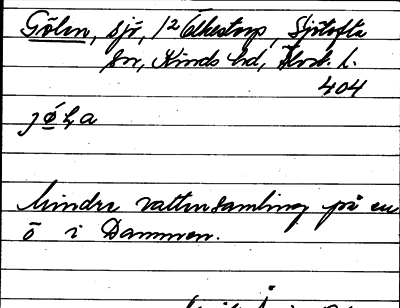 Gölen, sjö, 1² Ölkestorp, Sjötofta
sn, Kinds hd, Älvsb. l.
404
Mindre vattensamling på en
ö i Dammen.